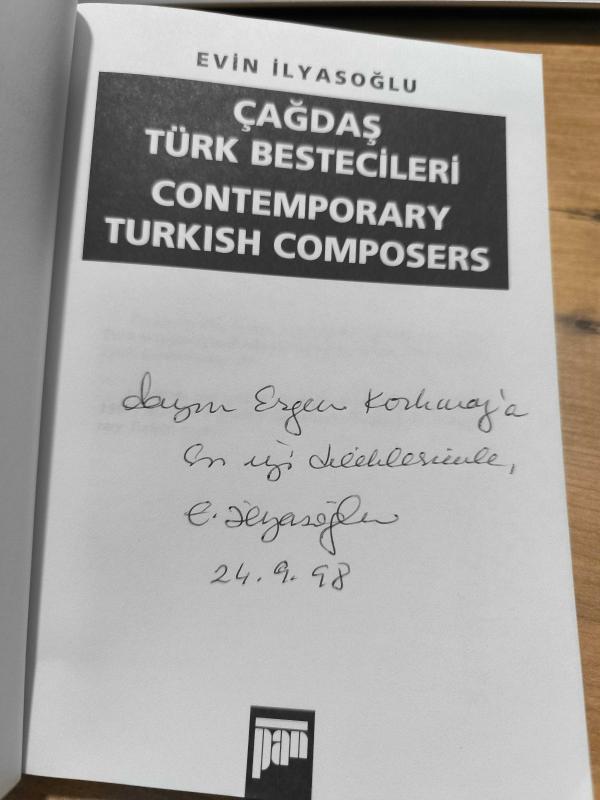 EVİN İLYASOĞLU
ÇAĞDAŞ
TÜRK BESTECİLERİ
CONTEMPORARY
TURKISH COMPOSERS
Sayın Ergen Korkmaz'a
En iyi dileklerimle,
E. İlyasoğlu
24.9.98
pan